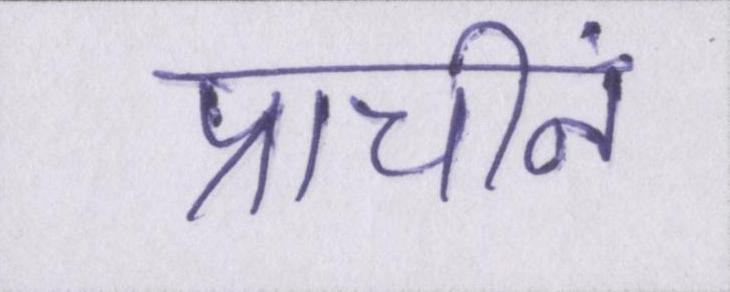 प्राचीनं